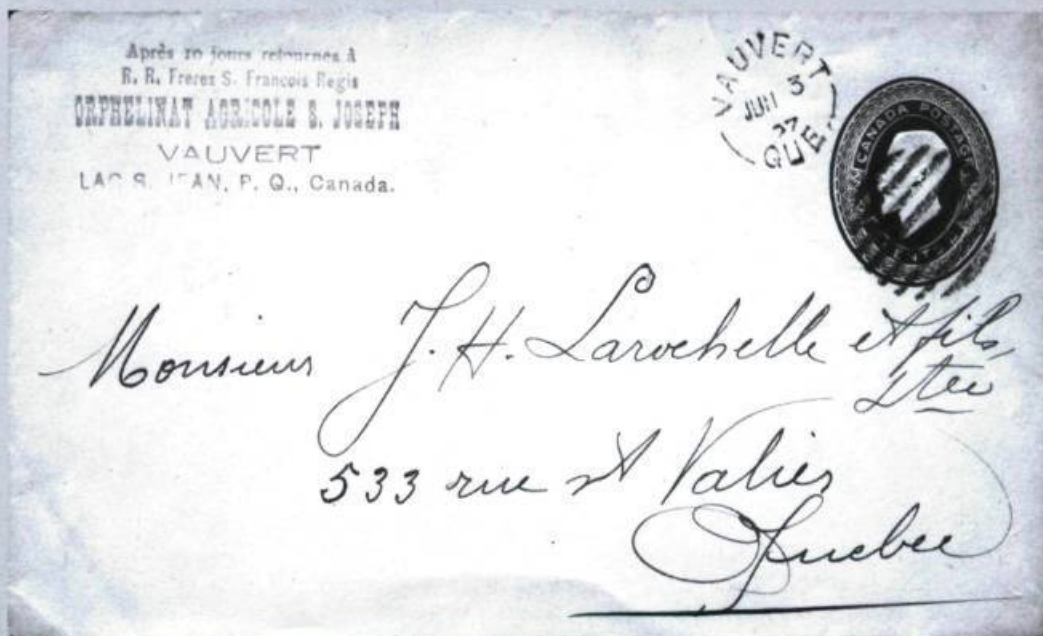 Après 10 jours retournes à
R. R. Freres S. Francois Regis
ORPHELINAT AGRICOLE S. JOSEPH
VAUVERT
LAC S. JEAN, P. Q., Canada.
VAUVERT
JUN 3
27
QUE
CANADA POSTAGE
Monsieur J. H. Larochelle et fils,
Ltee
533 rue St Valier
Quebec